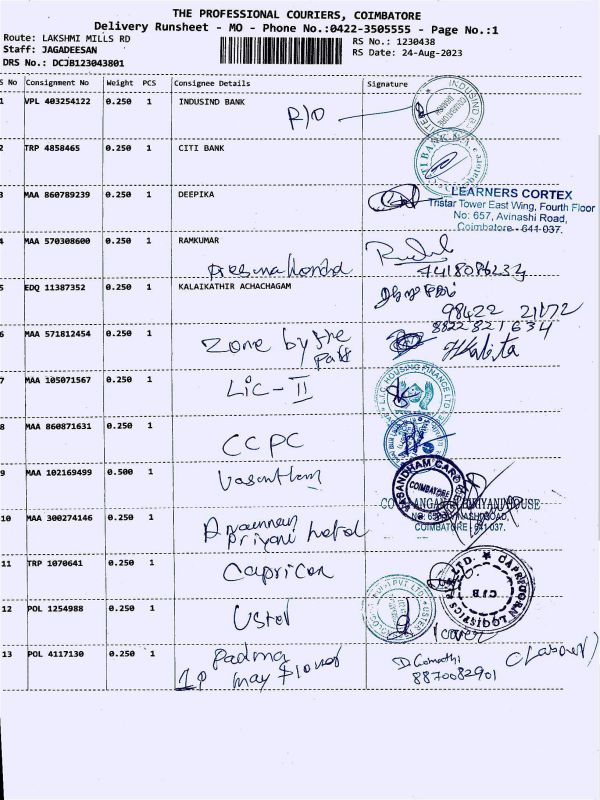 THE PROFESSIONAL COURIERS, COIMBATORE
Delivery Runsheet - MO - Phone No.:0422-3505555 - Page No.:1
Route: LAKSHMI MILLS RD
RS No.: 1230438
Staff: JAGADEESAN
RS Date: 24-Aug-2023
DRS No.: DCJB123043801
S No Consignment No Weight PCS Consignee Details Signature
1 VPL 403254122 0.250 1 INDUSIND BANK
P/O
2 TRP 4858465 0.250 1 CITI BANK
3 MAA 860789239 0.250 1 DEEPIKA
LEARNERS CORTEX
Tristar Tower East Wing, Fourth Floor
No: 657, Avinashi Road,
Coimbatore - 641 037.
4 MAA 570308600 0.250 1 RAMKUMAR
5 EDQ 11387352 0.250 1 KALAIKATHIR ACHACHAGAM
98422 21172
6 MAA 571812454 0.250 1 Zone by the 8822821634
Park
7 MAA 105071567 0.250 1 LIC - II L.I.C. HOUSING FINANCE LTD
8 MAA 860871631 0.250 1 CCPC
9 MAA 102169499 0.500 1 Vasantham VASANDHAM CARD COIMBATORE
10 MAA 300274146 0.250 1
BIRIYANI HOUSE
AVINASHI ROAD,
COIMBATORE - 641 037.
11 TRP 1070641 0.250 1 Capricon CAPRICORN LOGISTICS PVT LTD. CJB
12 POL 1254988 0.250 1 Uster
1 cover
13 POL 4117130 0.250 1 Padma D Gomathi
8870082901